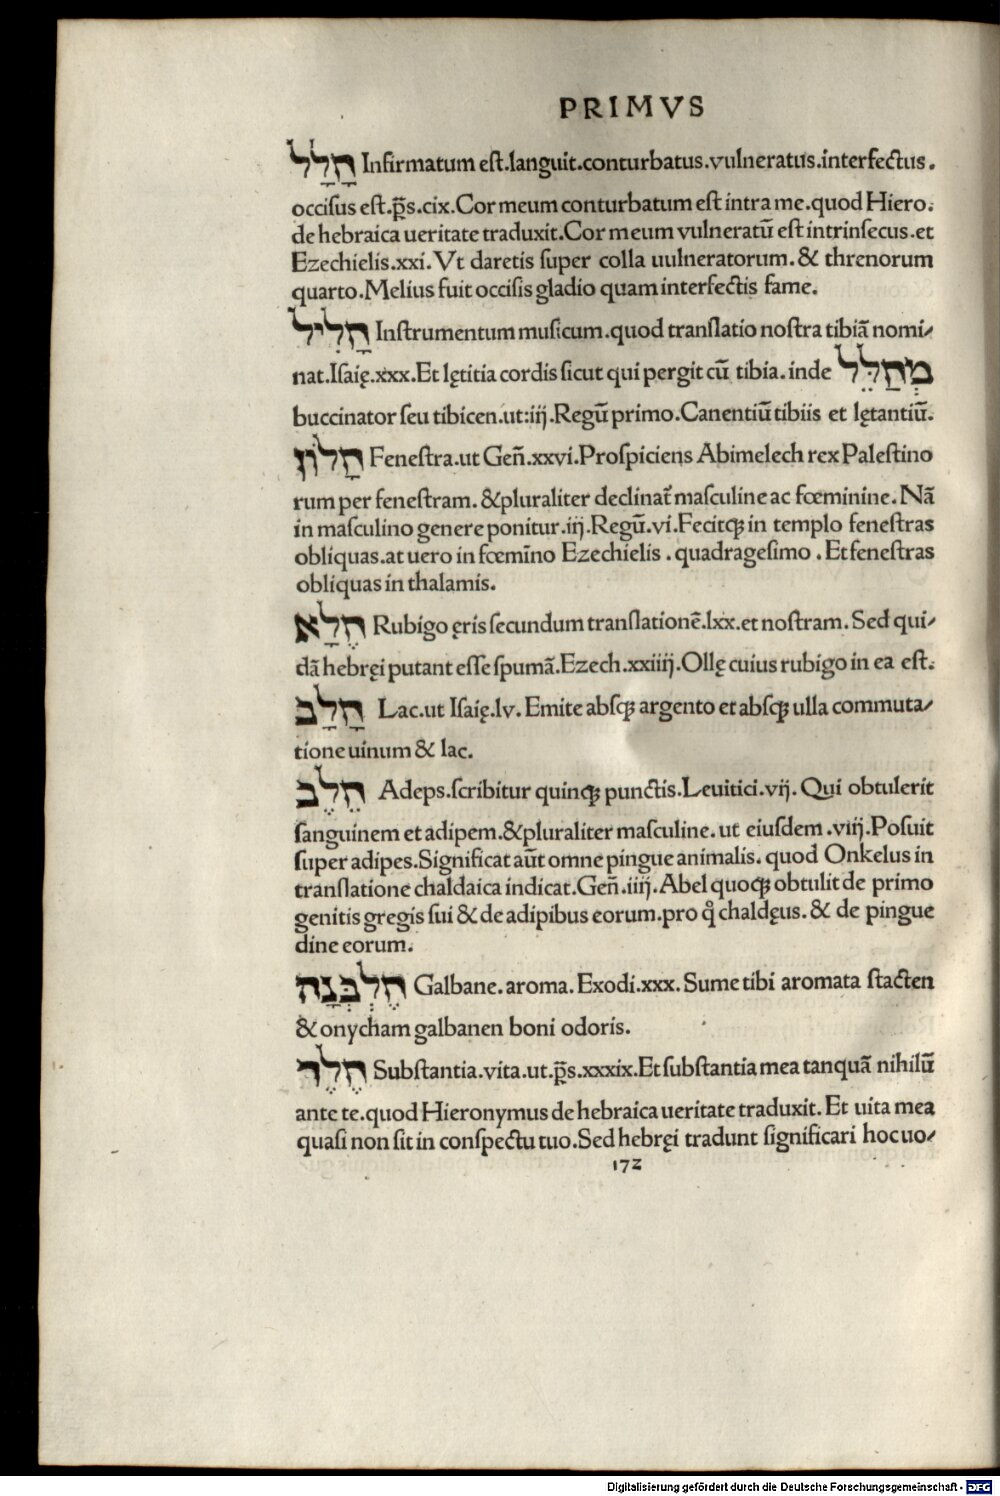 PRIMVS
חָלַל Infirmatum eſt.languit.conturbatus.vulneratus.interfectus.
occiſus eſt.p̄s.cix.Cor meum conturbatum eſt intra me.quod Hiero.
de hebraica ueritate traduxit.Cor meum vulneratū eſt intrinſecus.et
Ezechielis.xxi.Vt daretis ſuper colla uulneratorum.& threnorum
quarto.Melius fuit occiſis gladio quam interfectis fame.
חָלִיל Inſtrumentum muſicum.quod tranſlatio noſtra tibiā nomi⸗
nat.Iſaię.xxx.Et lętitia cordis ſicut qui pergit cū tibia.inde מְחַלֵּל
buccinator ſeu tibicen.ut:iij.Regū primo.Canentiū tibiis et lętantiū.
חָלוֹן Feneſtra.ut Geñ.xxvi.Proſpiciens Abimelech rex Paleſtino
rum per feneſtram.&pluraliter declinat᷑ maſculine ac fœminine.Nā
in maſculino genere ponitur.iij.Regū.vi.Fecitqꝫ in templo feneſtras
obliquas.at uero in fœmīno Ezechielis.quadrageſimo.Et feneſtras
obliquas in thalamis.
חֶלְאָ Rubigo ęris ſecundum tranſlationē.lxx.et noſtram.Sed qui⸗
dā hebręi putant eſſe ſpumā.Ezech.xxiiij.Ollę cuius rubigo in ea eſt.
חָלָב Lac.ut Iſaię.lv.Emite abſqꝫ argento et abſqꝫ ulla commuta⸗
tione uinum & lac.
חֵלֶב Adeps.ſcribitur quinqꝫ punctis.Leuitici.vij.Qui obtulerit
ſanguinem et adipem.&pluraliter maſculine.ut eiuſdem.viij.Poſuit
ſuper adipes.Significat aūt omne pingue animalis.quod Onkelus in
tranſlatione chaldaica indicat.Geñ.iiij.Abel quoqꝫ obtulit de primo
genitis gregis ſui & de adipibus eorum.pro qͦ chaldęus.& de pingue
dine eorum.
חֶלְבְּנָה Galbane.aroma.Exodi.xxx.Sume tibi aromata ſtacten
& onycham galbanen boni odoris.
חֶלֶד Subſtantia.vita.ut.p̄s.xxxix.Et ſubſtantia mea tanquā nihilū
ante te.quod Hieronymus de hebraica ueritate traduxit.Et uita mea
quaſi non ſit in conſpectu tuo.Sed hebręi tradunt ſignificari hoc uo⸗
172
Digitalisierung gefördert durch die Deutsche Forschungsgemeinschaft - DFG